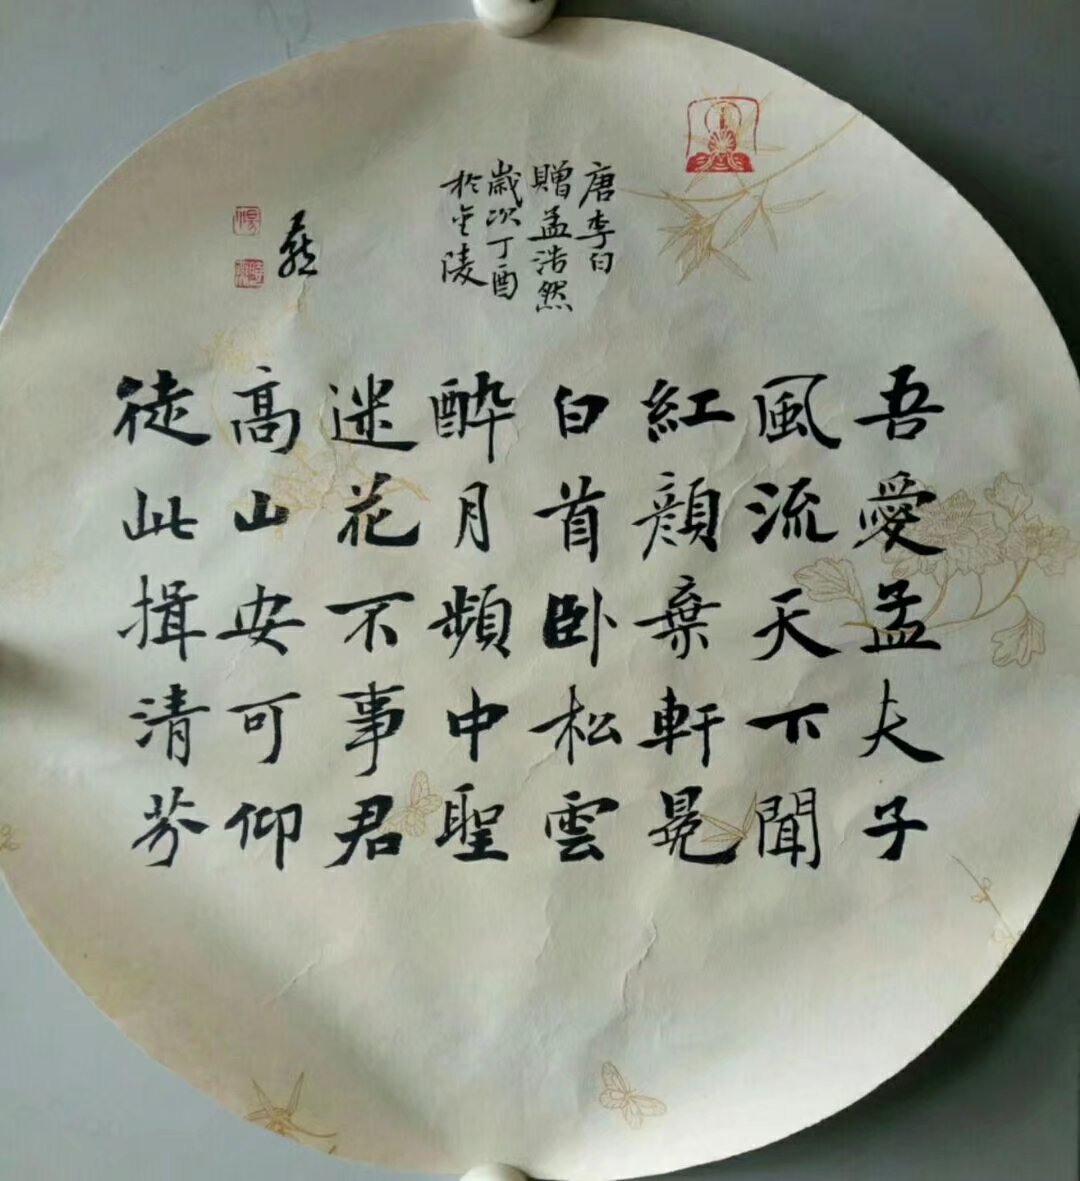 吾愛孟夫子
風流天下聞
紅顔棄軒冕
白首卧松雲
醉月頻中聖
迷花不事君
高山安可仰
徒此揖清芬
唐李白
贈孟浩然
歲次丁酉
於金陵